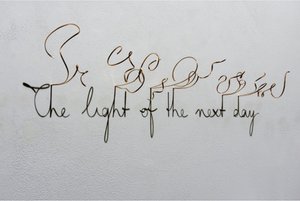 The light of the next day